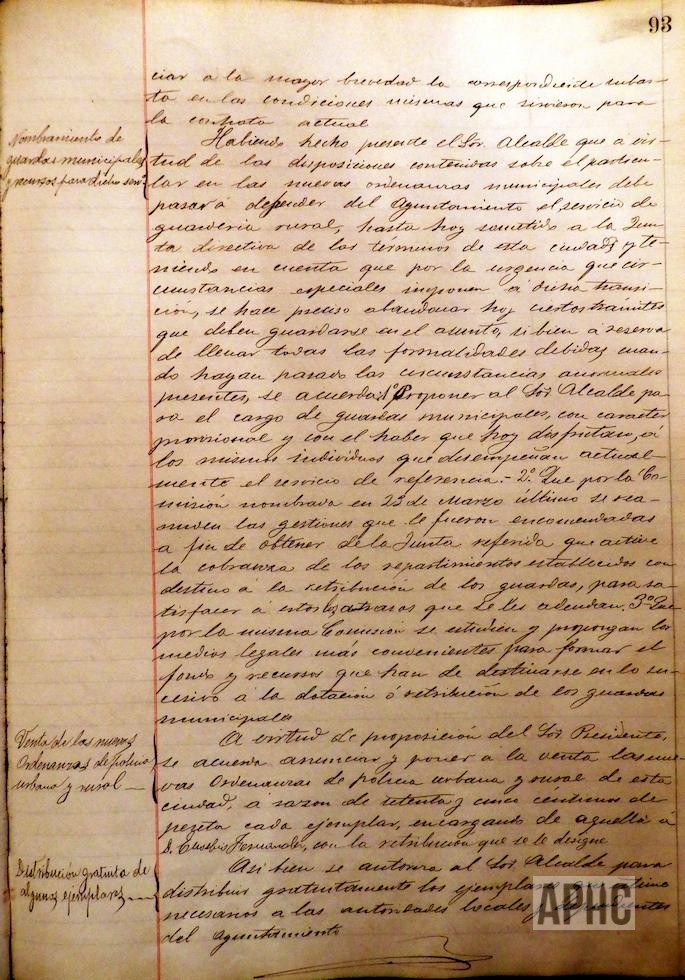 93
ciar a la mayor brevedad la correspondiente subas-
ta en las condiciones mismas que sirvieron para
la contrata actual
Nombramiento de
guardas municipales
y recursos para dicho serv.º
Habiendo hecho presente el Sor. Alcalde que a vir-
tud de las disposiciones contenidas sobre el particu-
lar en las nuevas ordenanzas municipales debe
pasar á depender del Ayuntamiento el servicio de
guardería rural, hasta hoy sometido a la Jun-
ta directiva de los términos de esta ciudad; y te-
niendo en cuenta que por la urgencia que cir-
cunstancias especiales imponen á dicha transi-
ción, se hace preciso abandonar hoy ciertos trámites
que deben guardarse en el asunto, si bien á reserva
de llenar todas las formalidades debidas cuan-
do hayan pasado las circunstancias anormales
presentes, se acuerda: 1º Proponer al Sor Alcalde pa-
ra el cargo de guardas municipales, con carácter
provisional y con el haber que hoy disfrutan, á
los mismos individuos que desempeñan actual-
mente el servicio de referencia.- 2º. Que por la Co-
misión nombrada en 23 de Marzo último se rea-
nuden las gestiones que le fueron encomendadas
a fin de obtener de la Junta referida que active
la cobranza de los repartimientos establecidos con
destino á la retribución de los guardas, para sa-
tisfacer á estos los atrasos que se les adeudan. 3º Que
por la misma Comisión se estudien y propongan los
medios legales más convenientes para formar el
fondo y recursos que han de destinarse en lo su-
cesivo á la dotación ó retribución de los guardas
municipales
Venta de las nuevas
Ordenanzas de policia
urbana y rural
A virtud de proposición del Sor Presidente,
se acuerda anunciar y poner á la venta las nue-
vas Ordenanzas de policia urbana y rural de esta
ciudad, a razon de setenta y cinco céntimos de
peseta cada ejemplar, encargando de aquella á
D. Eusebio Fernandez, con la retribución que se le designe
Distribución gratuita de
algunos ejemplares
Asi bien se autoriza al Sor Alcalde para
distribuir gratuitamente los ejemplares que estime
necesarios a las autoridades locales y dependientes
del Ayuntamiento
APHC